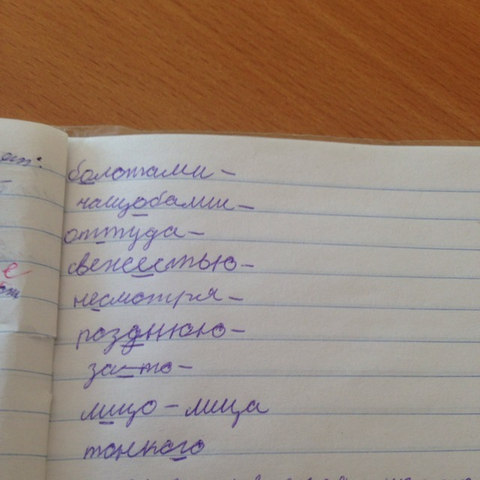 болотами –
чащобами –
оттуда –
свежестью –
несмотря –
позднюю –
за-то –
лицо – лица
тонкого